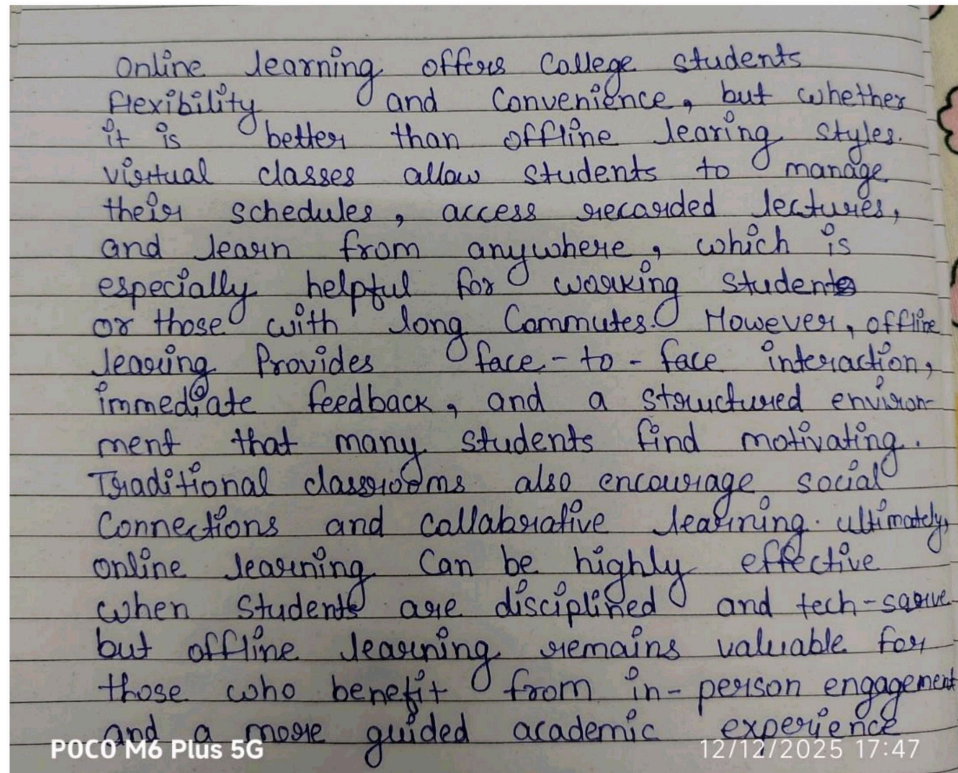 Online learning offers College students
flexibility and Convenience, but whether
it is better than offline learing styles.
virtual classes allow students to manage
their schedules, access recorded lectures,
and learn from anywhere, which is
especially helpful for working students
or those with long Commutes. However, offline
learing Provides face-to-face interaction,
immediate feedback, and a structured environ-
ment that many students find motivating.
Traditional classrooms also encourage social
Connections and collabrative learning. ultimately,
online learning Can be highly effective
when Students are disciplined and tech-sarve
but offline learning remains valuable for
those who benefit from in-person engagement
and a more guided academic experience
POCO M6 Plus 5G 12/12/2025 17:47